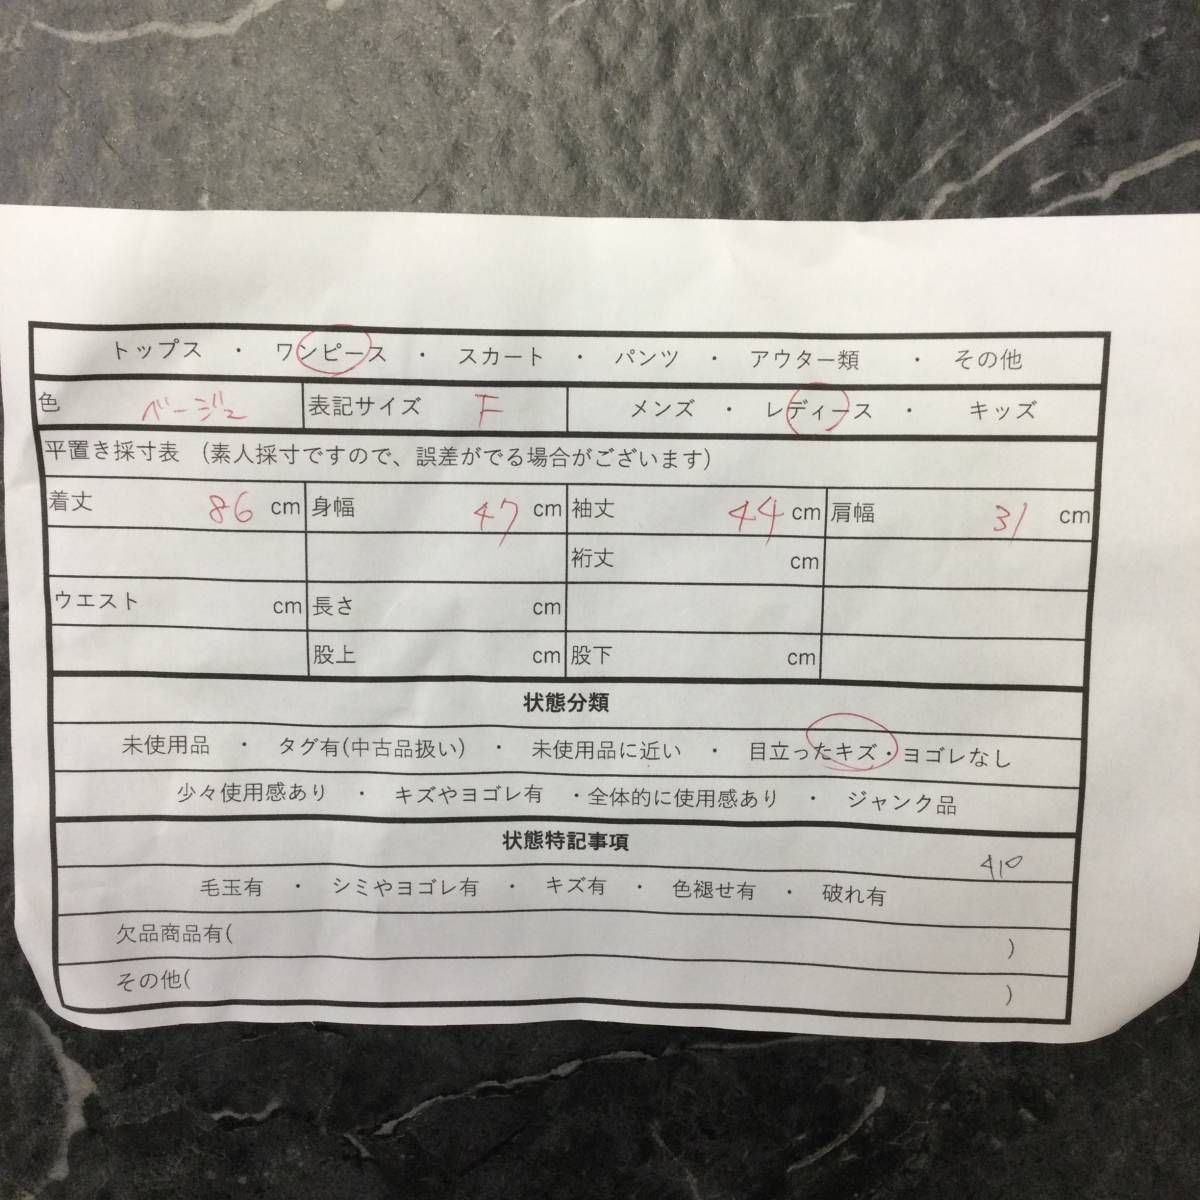 トップス ・ ワンピース ・ スカート ・ パンツ ・ アウター類 ・ その他
色 ベージュ 表記サイズ F メンズ ・ レディース ・ キッズ
平置き採寸表 (素人採寸ですので、誤差がでる場合がございます)
着丈 86 cm 身幅 47 cm 袖丈 44 cm 肩幅 31 cm
裄丈 cm
ウエスト cm 長さ cm
股上 cm 股下 cm
状態分類
未使用品 ・ タグ有(中古品扱い) ・ 未使用品に近い ・ 目立ったキズ・ヨゴレなし
少々使用感あり ・ キズやヨゴレ有 ・全体的に使用感あり ・ ジャンク品
状態特記事項
410
毛玉有 ・ シミやヨゴレ有 ・ キズ有 ・ 色褪せ有 ・ 破れ有
欠品商品有( )
その他( )